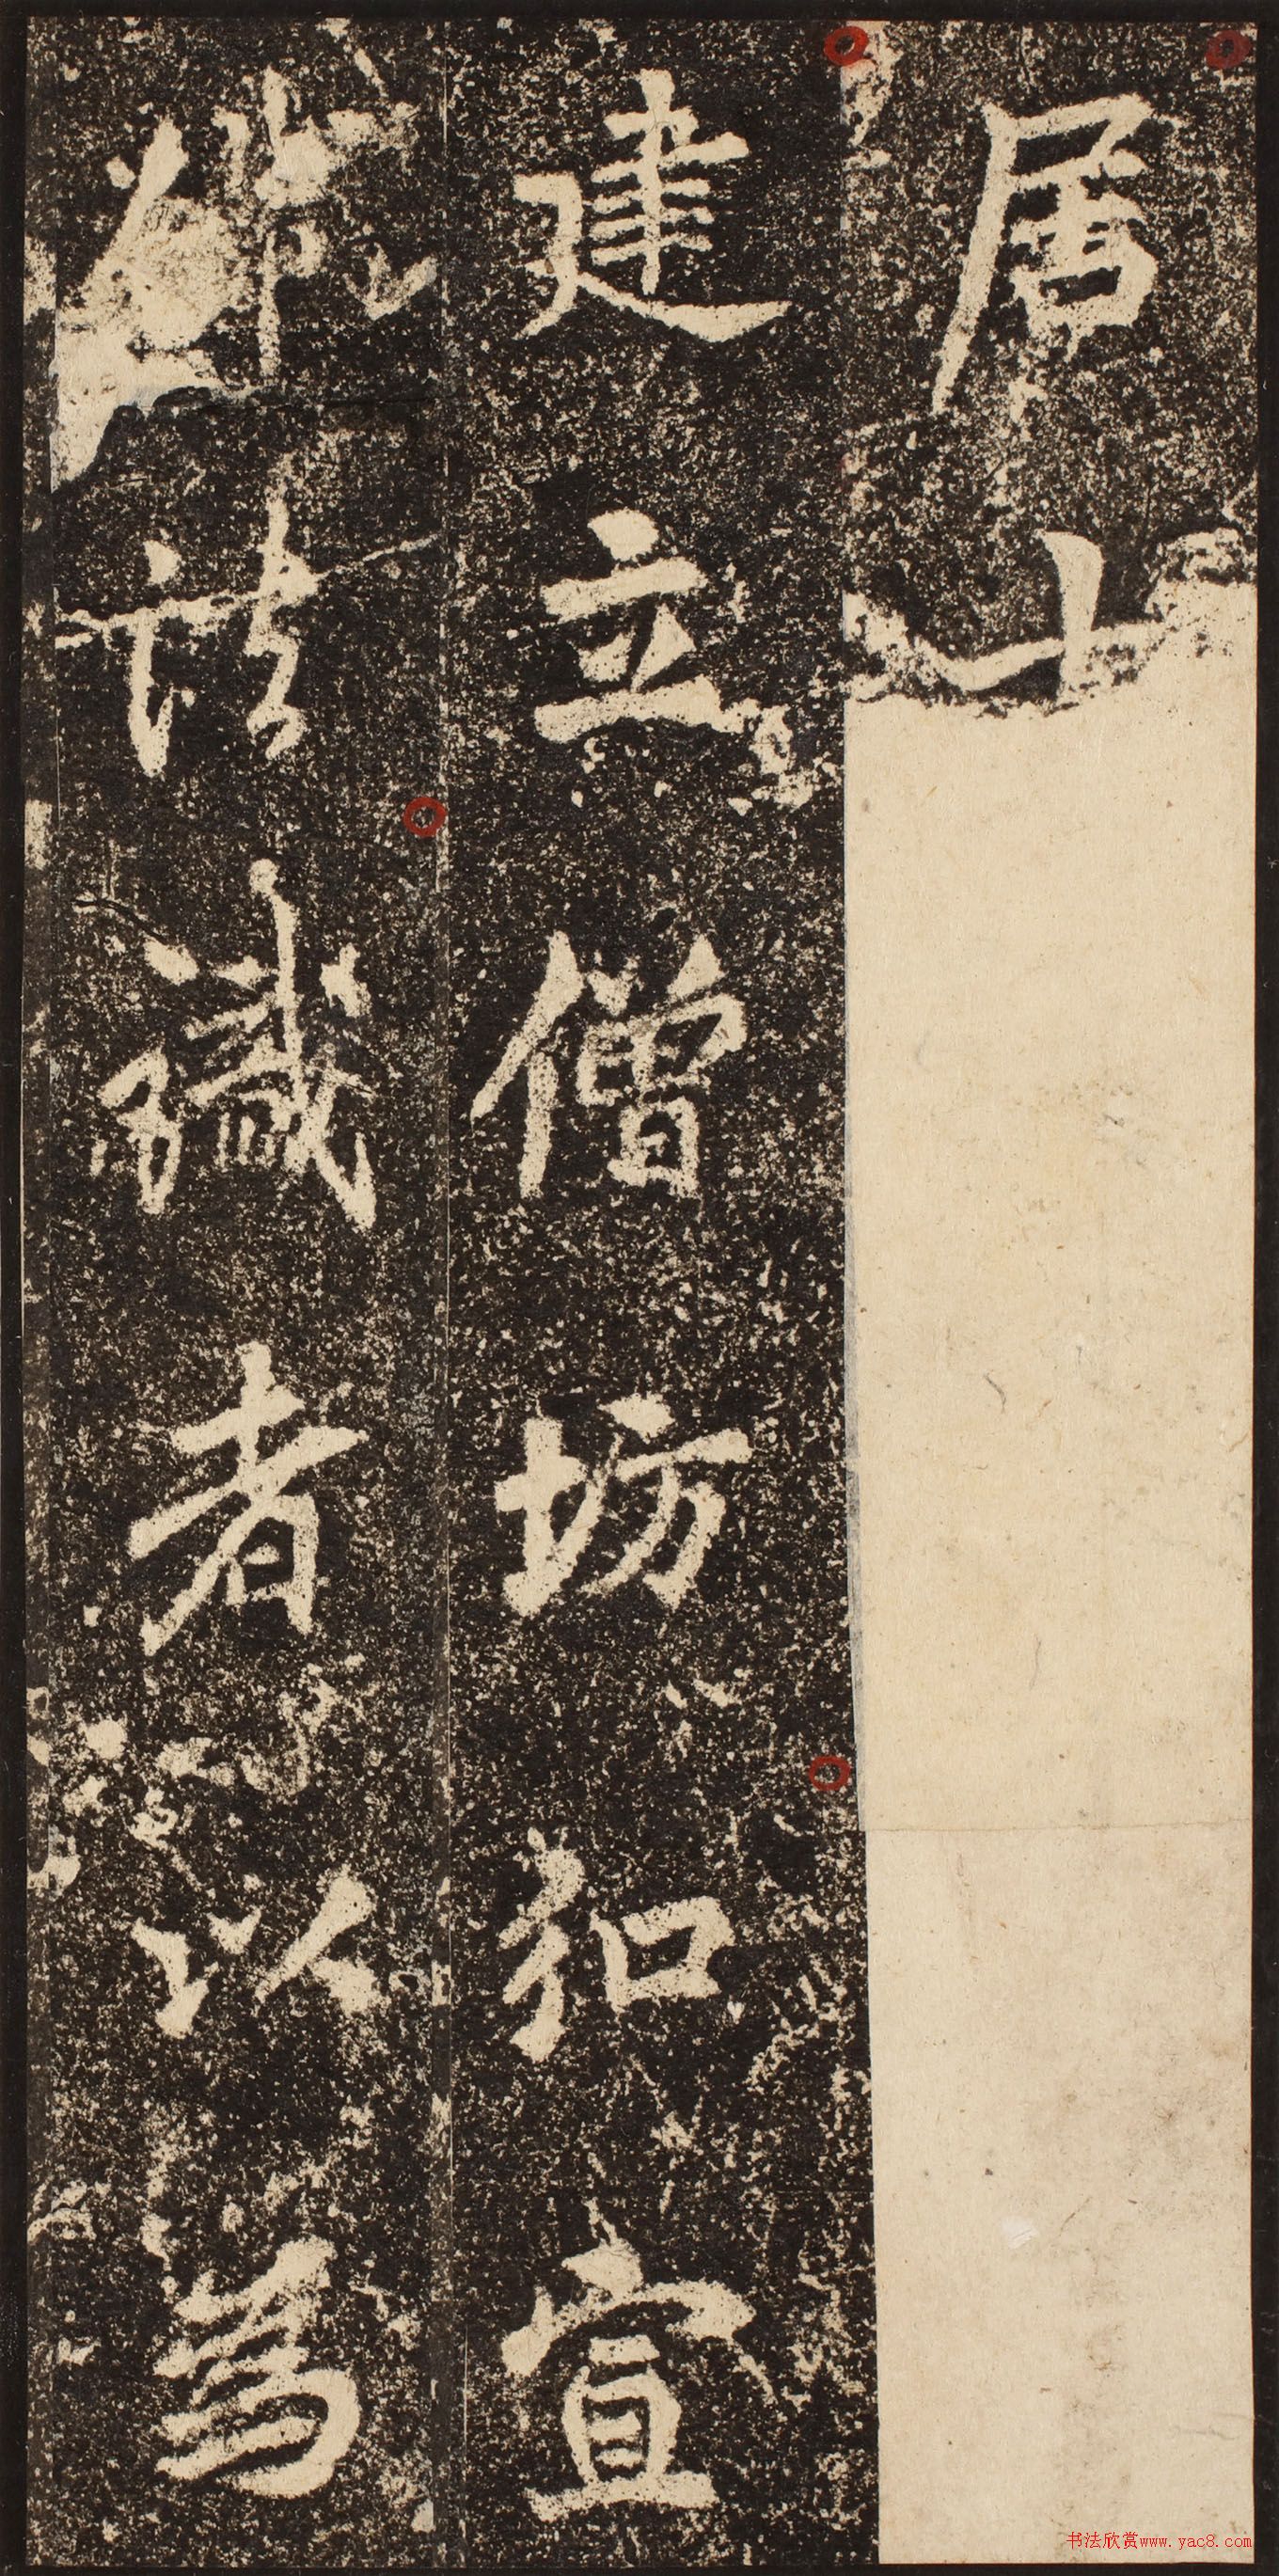 居
建立僧坊弘宣
法識者以為
书法欣赏www.yac8.com